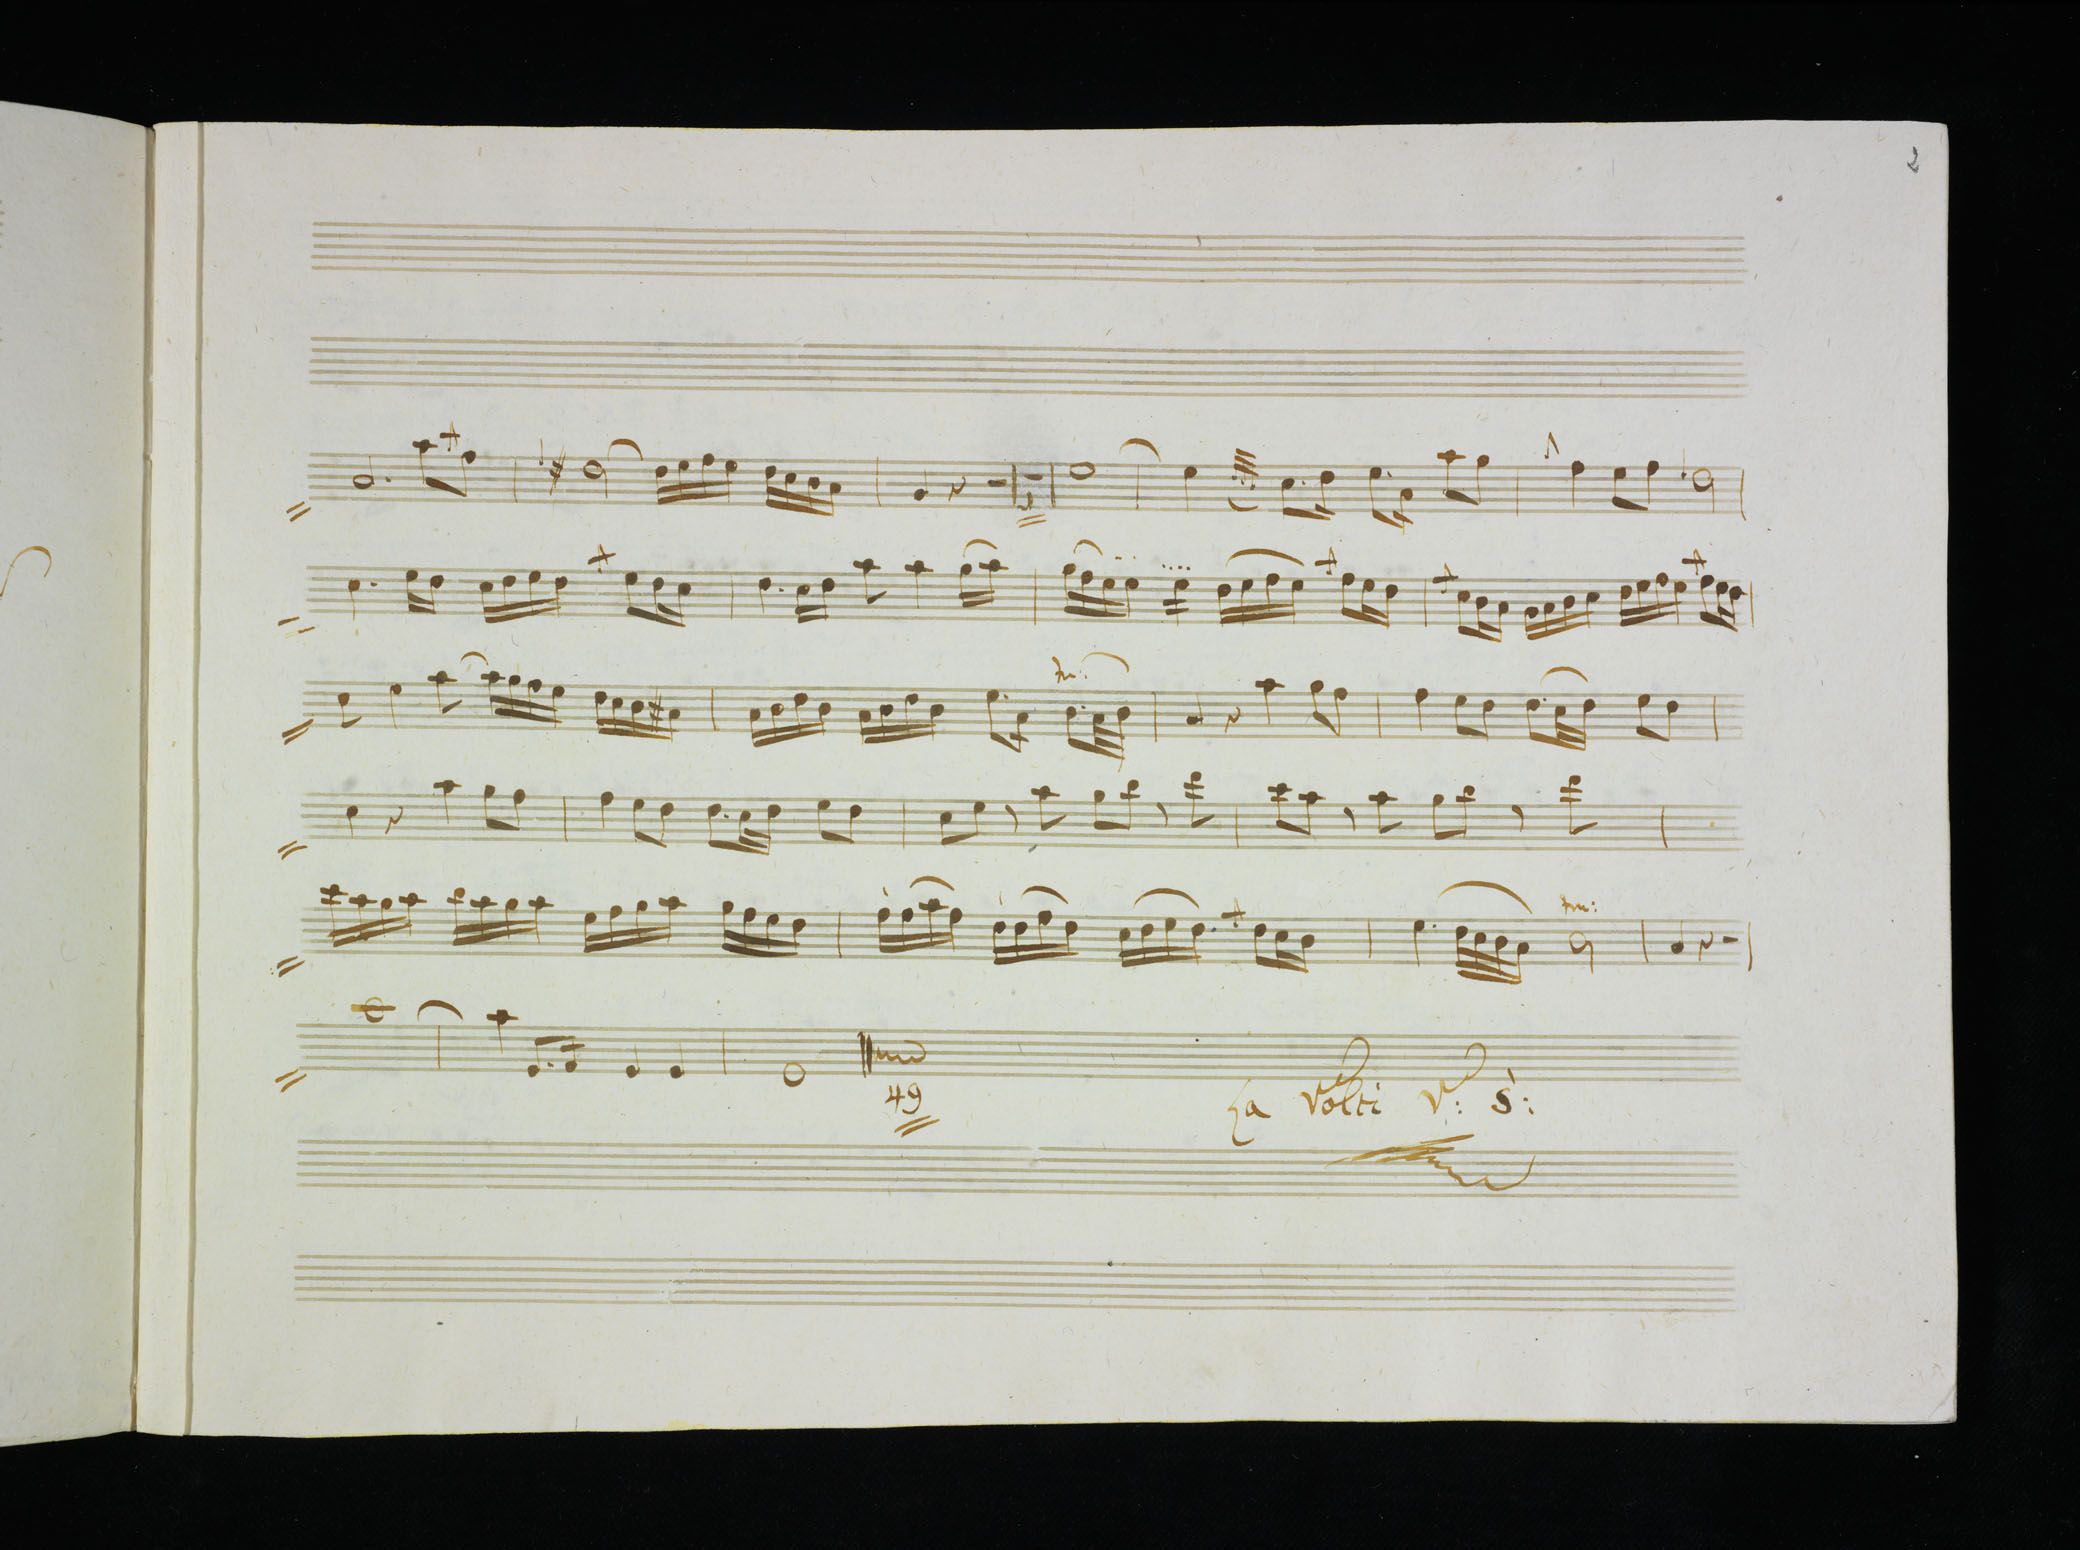 2
tr:
tr:
49
La Volti V: S: